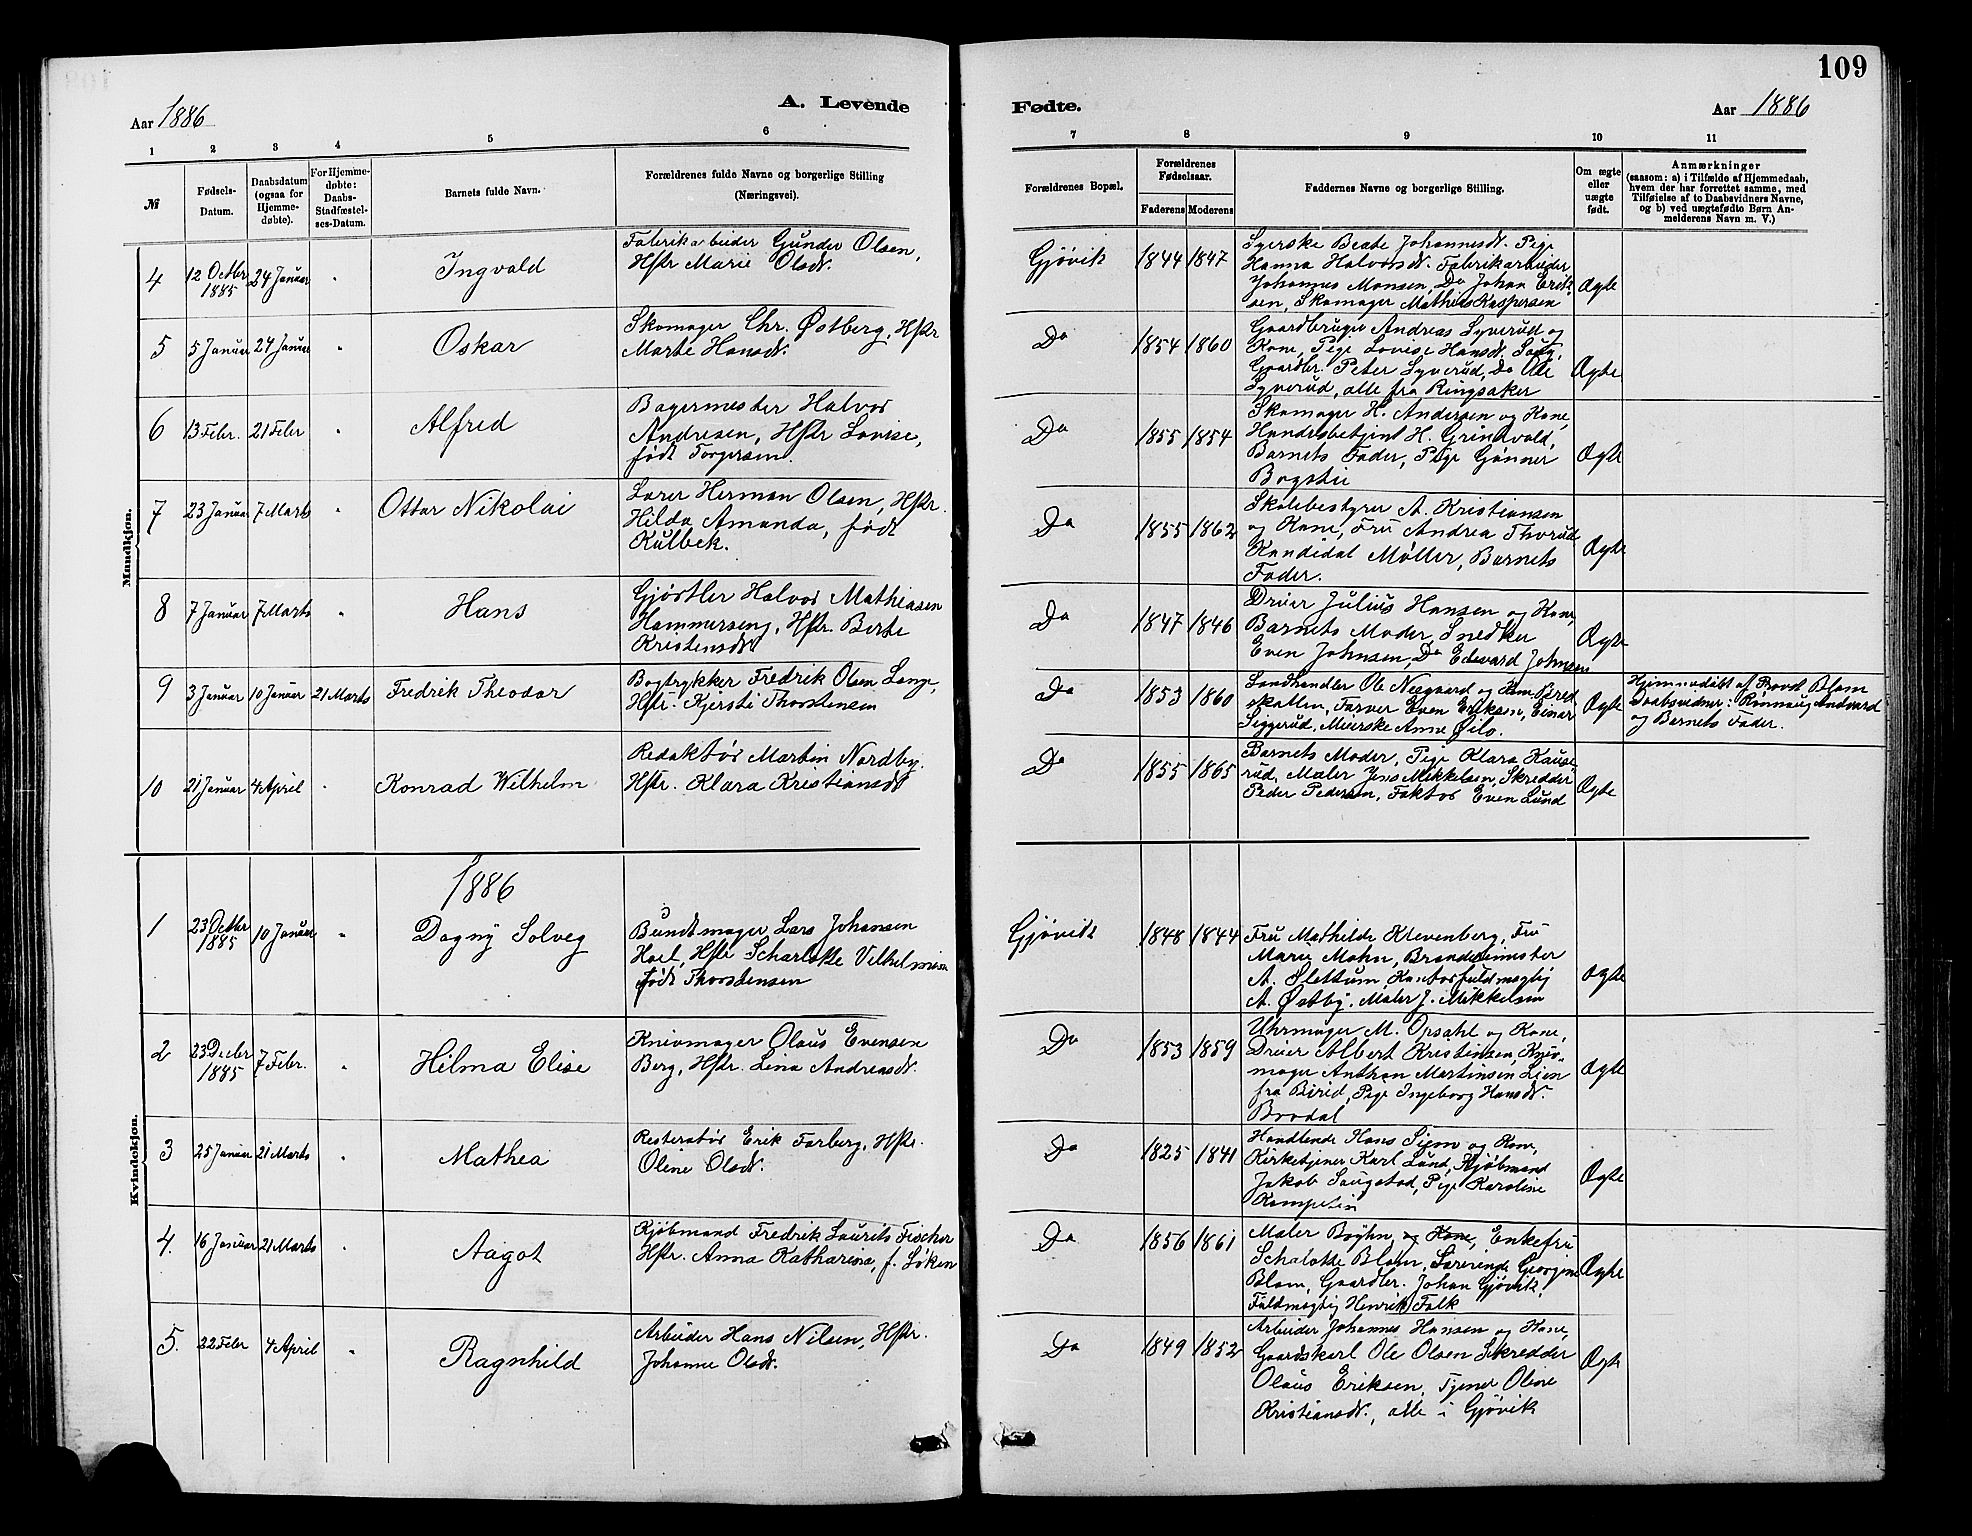 109
Aar 1886
A. Levende
Fødte.
Aar 1886
1 2 3 4 5 6 7 8 9 10 11
№
Fødsels-
Datum.
Daabsdatum
(ogsaa for
Hjemme-
døbte).
For Hjemme-
døbte:
Daabs-
Stadfæstel-
ses-Datum.
Barnets fulde Navn.
Forældrenes fulde Navne og borgerlige Stilling
(Næringsvei).
Forældrenes Bopæl.
Forældrenes
Fødselsaar.
Faderens Moderens
Faddernes Navne og borgerlige Stilling.
Om ægte
eller
uægte
født.
Anmærkninger
(saasom: a) i Tilfælde af Hjemmedaab,
hvem der har forrettet samme, med
Tilføielse af to Daabsvidners Navne,
og b) ved uægtefødte Børn An-
melderens Navn m. V.)
Mandkjøn.
4
12 Octbr
1885
24 Januar
"
Ingvald
Fabrikarbeider Gunder Olsen,
Hstr Marie Olsdt.
Gjøvik
1844 1847
Syerske Beate Johannesdt. Pige
Hanna Halvorsdt. Fabrikarbeider
Johannes Monsen, Do Johan Erik-
sen, Skomager Mathias Kaspersen
Ægte
5
5 Januar 24 Januar
"
Oskar
Skomager Chr. Østberg, Hstr
Marte Hansdt.
Do
1854 1860
Gaardbruger Andreas Syverud og
Kone, Pige Lovise Hansdt.
Gaardbr. Peter Syverud, Do Ole
Syverud, alle fra Ringsaker
Ægte
6
13 Febr. 21 Febr
"
Alfred
Bagermester Halvor
Andresen, Hstr Lovise,
født Torgersen.
Do
1855 1854
Skomager H. Andersen og Kone,
Handelsbetjent H. Grindvold,
Barnets Fader, Pige Gunner
Bogstie
Ægte
7
23 Januar 7 Marts
"
Ottar Nikolai
Lærer Herman Olsen, Hstr.
Hilda Amanda, født
Kulbek.
Do
1855 1862
Skolebestyrer A. Kristiansen
og Kone, Fru Andrea Thorud
Kandidat Møller, Barnets
Fader.
Ægte
8
7 Januar 7 Marts
"
Hans
Gjørtler Halvor Mathiasen
Hammerseng, Hstr. Berte
Kristensdt
Do
1847 1846
Dreier Julius Hansen og Kone,
Barnets Moder, Snedker
Even Johnsen, Do Edevard Johnsen
Ægte
9
3 Januar 10 Januar 21 Marts
Fredrik Theodor
Bogtrykker Fredrik Olsen Lange,
Hstr. Kjersti Thorstensen
Do
1853 1860
Landhandler Ole Neegaard og Kone Bred-
skallen, Farver Even Eriksen, Einar
Siggerud, Meierske Anne Øilo.
Ægte
Hjemmedøbt af Provst Blom
Daabsvidner: Rønnaug
og Barnets Fader.
10
21 Januar 4 April
"
Konrad Wilhelm
Redaktør Martin Nordby.
Hstr. Klara Kristiansdt
Do
1855 1865
Barnets Moder, Pige Klara Kause-
rud, Maler Jens Mikkelsen, Skredder
Peder Pedersen, Faktor Even Lund
Ægte
1886
Kvindekjøn.
1
23 Octbr
1885
10 Januar
"
Dagny Solveg
Bundtmager Lars Johansen
Hoel, Hstr Scharlotte Vilhelmine
født Thorstensen
Gjøvik
1848 1844
Fru Mathilde Klevenberg, Fru
Marie Mohn, Brandmester
A. Slettum, Kontorfuldmægtig
A. Østby, Maler J. Mikkelsen
Ægte
2
23 Decbr
1885
7 Febr.
"
Hilma Elise
Knivmager Olaus Evensen
Berg, Hstr. Lina Andreasdt.
Do
1853 1859
Uhrmager M. Opsahl og Kone,
Dreier Albert Kristensen, Kniv-
mager Anthon Martinsen Lien
fra Birid, Pige Ingeborg Hansdt.
Brodal
Ægte
3
25 Januar 21 Marts
"
Mathea
Resteratør Erik Farberg, Hstr.
Oline Olsdt.
Do
1825 1841
Handlende Hans Siem og Kone,
Kirketjener Karl Lund, Kjøbmand
Jakob Saugstad, Pige Karoline
Kampesein
Ægte
4.
16 Januar 21 Marts
"
Aagot
Kjøbmand Fredrik Laurits Fischer
Hstr. Anna Katharina, f. Løken
Do
1856 1861
Maler Bøyhn og Kone, Enkefru
Schalotte Blom, Lærerinde Georgine
Blom, Gaardbr. Johan Gjøvik,
Fuldmægtig Henrik Falk
Ægte
5.
22 Febr 4 April
"
Ragnhild
Arbeider Hans Nilsen, Hstr.
Johanne Olsdt.
Do
1849 1852
Arbeider Johannes Hansen og Kone,
Gaardskarl Ole Olsen Skredder
Olaus Eriksen, Tjener Oline
Kristiansdt., alle i Gjøvik
Ægte